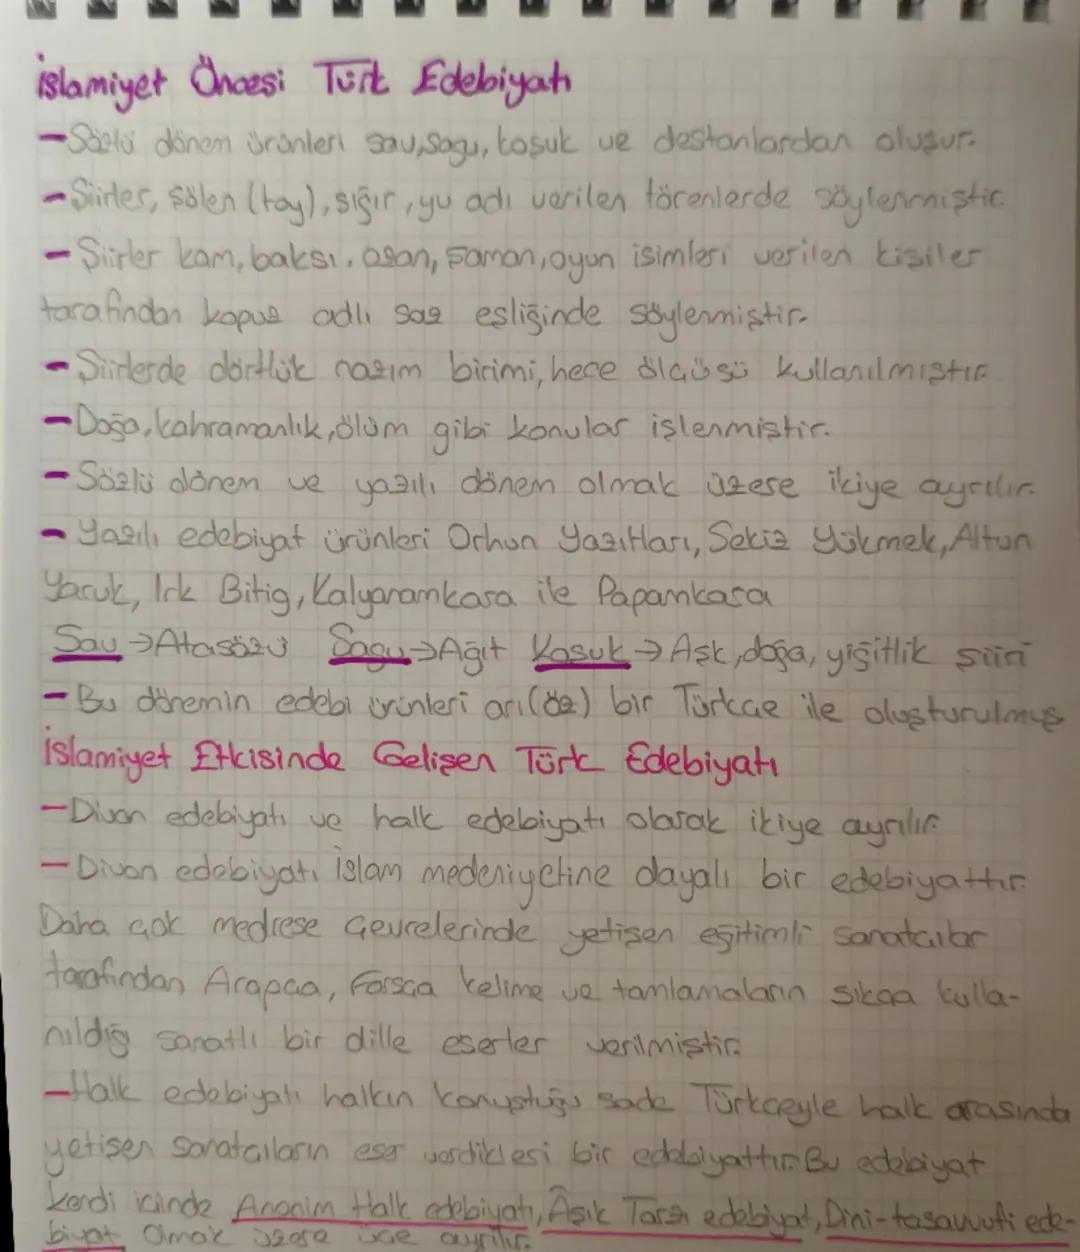 İslamiyet Öncesi Türk Edebiyatı
- Sözlü dönem ürünleri sav, sagu, koşuk ve destanlardan oluşur.
- Şiirler, şölen (toy), sığır, yu adı verilen törenlerde söylenmiştir
- Şiirler kam, baksı, ozan, şaman, oyun isimleri verilen kişiler
tarafından kopuz adlı saz eşliğinde söylenmiştir.
- Şiirlerde dörtlük nazım birimi, hece ölçüsü kullanılmıştır
- Doğa, kahramanlık, ölüm gibi konular işlenmiştir.
- Sözlü dönem ve yazılı dönem olmak üzere ikiye ayrılır.
- Yazılı edebiyat ürünleri Orhun Yazıtları, Sekiz Yükmek, Altun
Yaruk, Irk Bitig, Kalyanamkara ile Papamkara
Sav → Atasözü Sagu → Ağıt Koşuk → Aşk, doğa, yiğitlik şiiri
- Bu dönemin edebi ürünleri arı (öz) bir Türkçe ile oluşturulmuş
İslamiyet Etkisinde Gelişen Türk Edebiyatı
- Divan edebiyatı ve halk edebiyatı olarak ikiye ayrılır.
- Divan edebiyatı İslam medeniyetine dayalı bir edebiyattır.
Daha çok medrese çevrelerinde yetişen eğitimli sanatçılar
tarafından Arapça, Farsça kelime ve tamlamaların sıkça kulla-
nıldığ sanatlı bir dille eserler verilmiştir.
- Halk edebiyatı halkın konuştuğu sade Türkçeyle halk arasında
yetişen sanatçıların eser verdikleri bir edebiyattır. Bu edebiyat
kendi içinde Anonim Halk edebiyatı, Âşık Tarzı edebiyat, Dini-tasavvufi ede-
biyat olmak üzere üçe ayrılır.